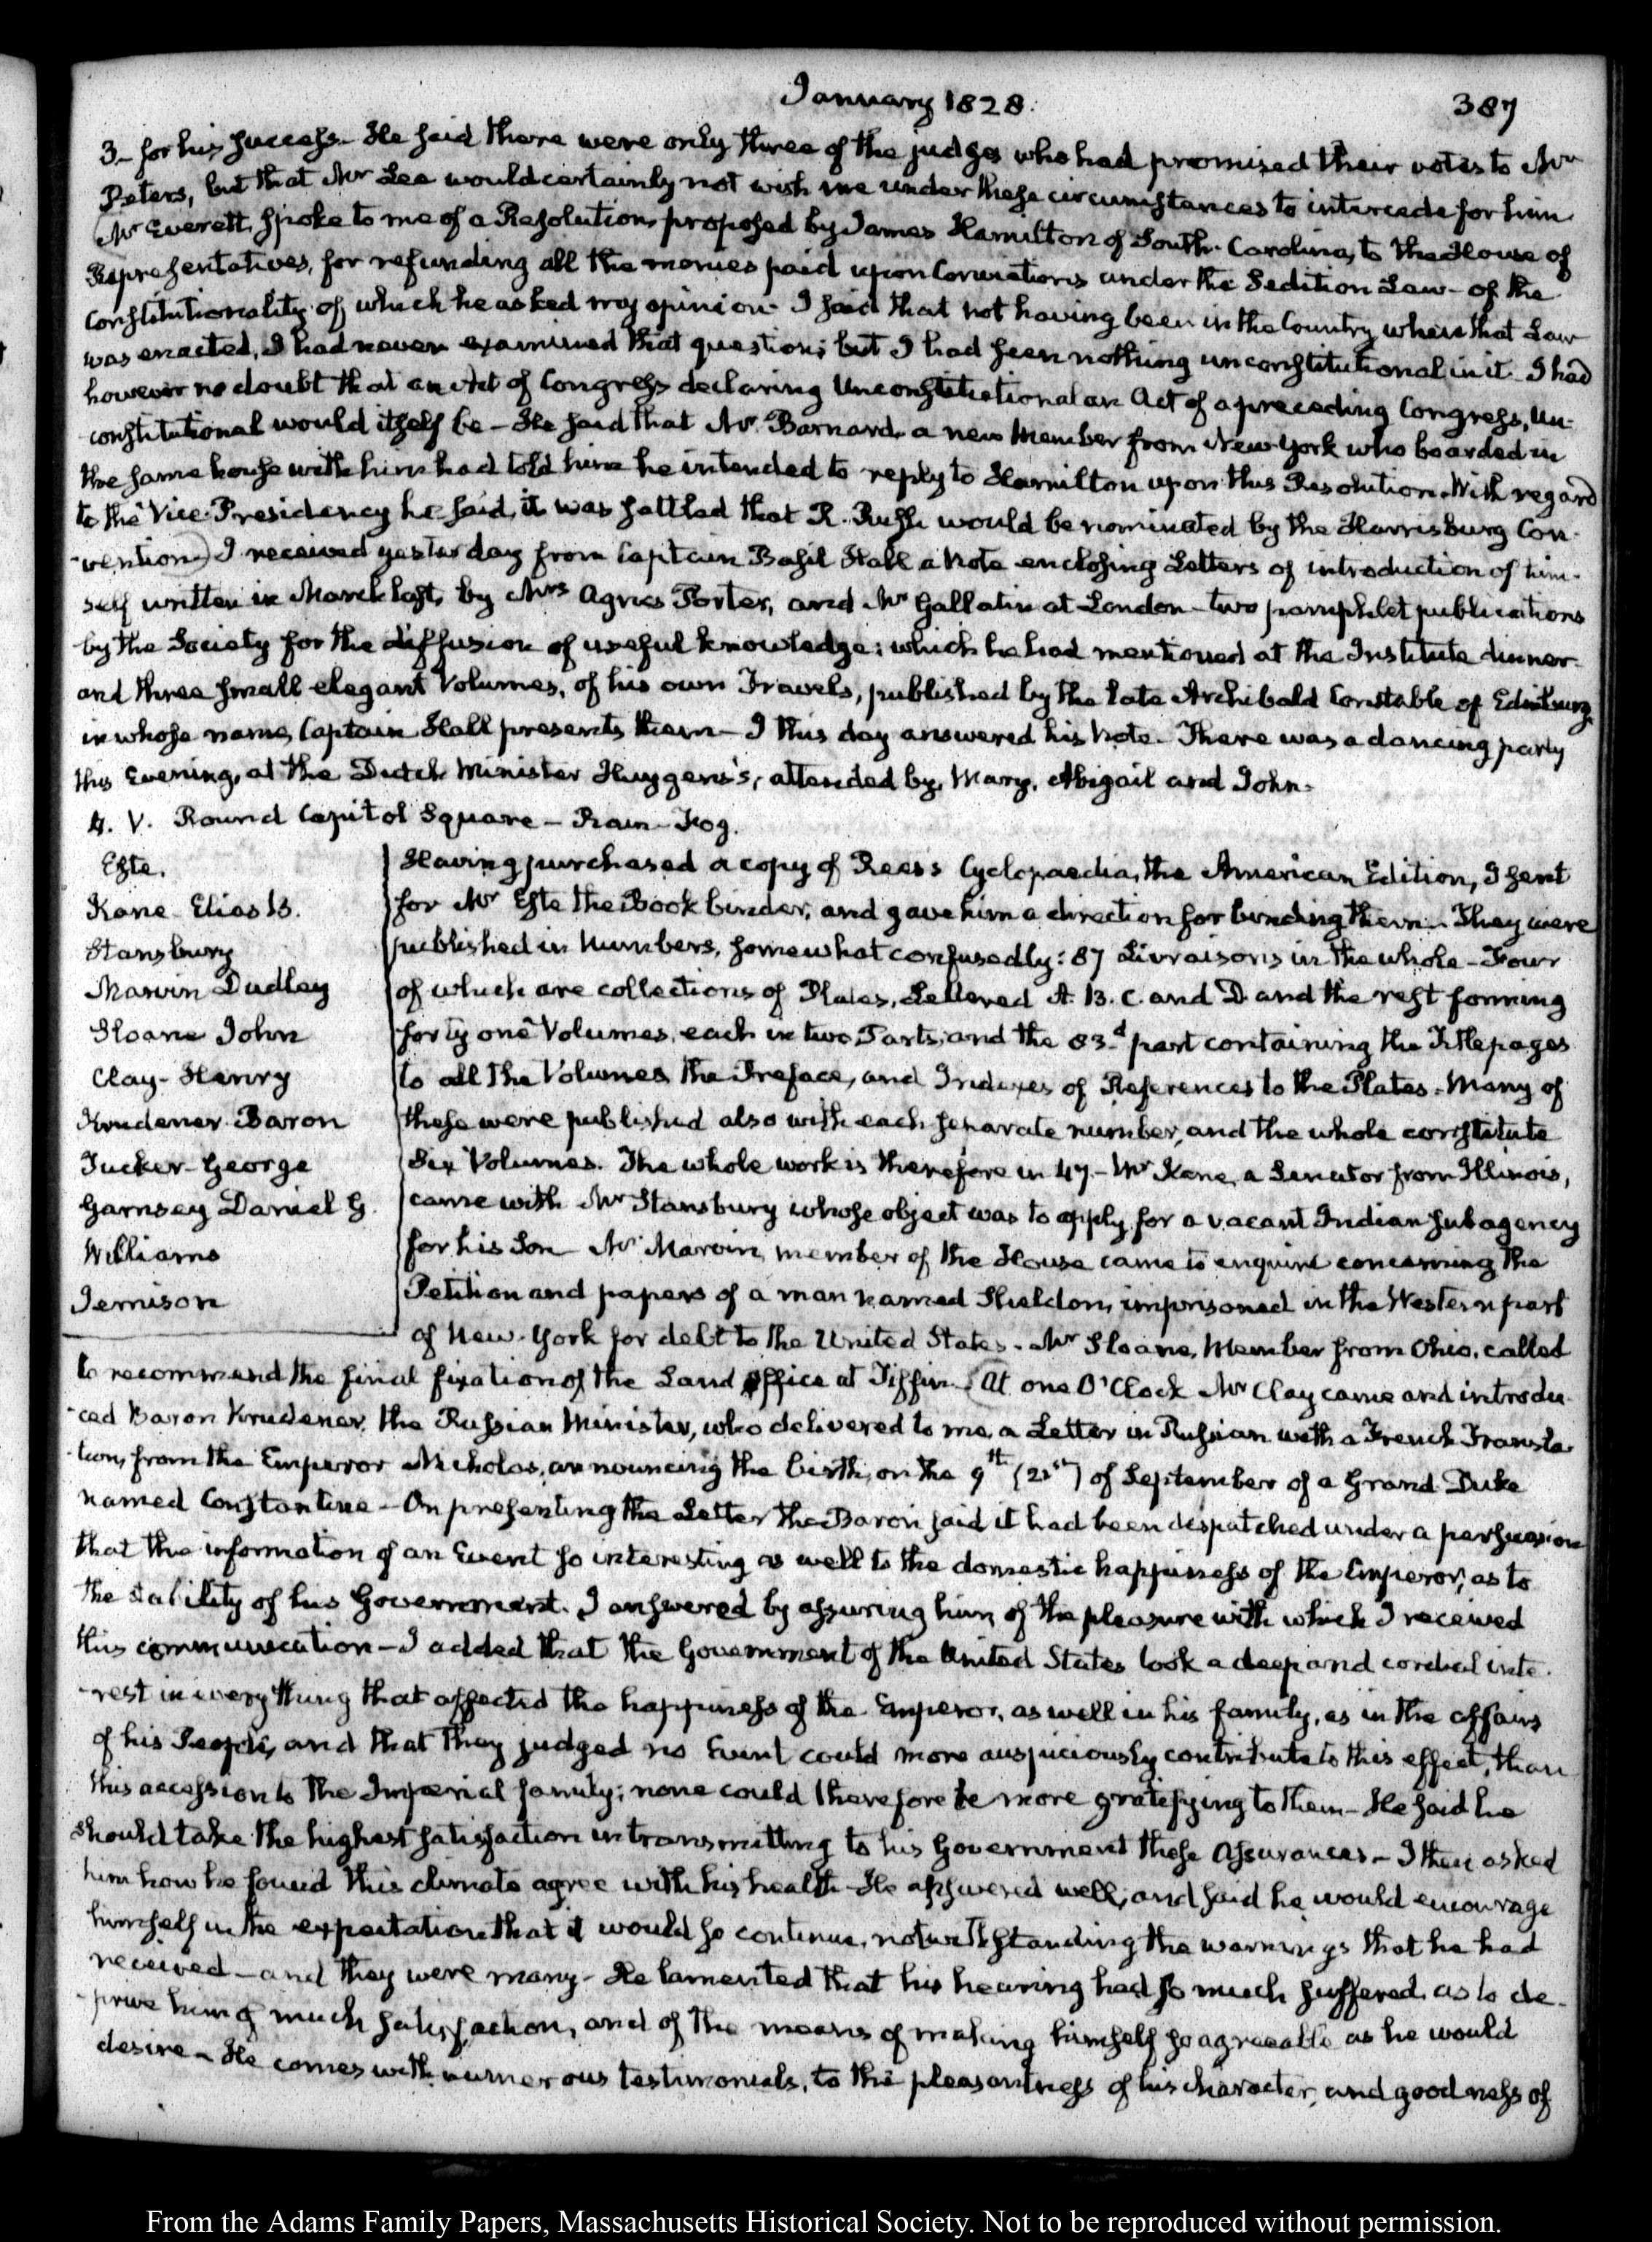 January 1828.
387
3– for his success– He said there were only three of the judges who had promised their votes to Mr
Peters, but that Mr Lee would certainly not wish me under these circumstances to intercede for him
Mr Everett, spoke to me of a Resolution, proposed by James Hamilton of South-Carolina, to the House of
Representatives, for refunding all the monies paid upon Convictions under the Sedition Law– of the
Constitutionality of which he asked my opinion– I said that not having been in the Country when that Law
was enacted, I had never examined that question; but I had seen nothing unconstitutional in it. I had
however no doubt that an Act of Congress declaring Unconstitutional an Act of a preceding Congress, Un-
constitutional would itself be– He said that Mr Barnard a new Member from New York who boarded in
the same house with him had told him he intended to reply to Hamilton upon this Resolution. With regard
to the Vice-Presidency he said, it was settled that R. Rush would be nominated by the Harrisburg Con-
-vention) I received yesterday from Captain Basil Hall a Note enclosing Letters of introduction of him-
self written in March last, by Mrs Agnes Porter, and Mr Gallatin at London– two pamphlet publications
by the Society for the diffusion of useful knowledge; which he had mentioned at the Institute dinner
and three small elegant Volumes, of his own Travels, published by the late Archibald Constable of Edinburg
in whose name, Captain Hall presents them– I this day answered his Note. There was a dancing party
this Evening, at the Dutch Minister Huygens's, attended by, Mary, Abigail and John.
4. V. Round Capitol Square– Rain– Fog.
Este.
Kane Elias K.
Stansbury
Marvin Dudley
Sloane John
Clay– Henry
Krudener Baron
Tucker– George
Garnsey Daniel G.
Williams
Jemison
Having purchased a copy of Rees's Cyclopaedia, the American Edition, I sent
for Mr Este the Book binder, and gave him a direction for binding them– They were
published in Numbers, somewhat confusedly: 87 Livraisons in the whole– Four
of which are collections of Plates, Lettered A. B. C. and D and the rest forming
forty one Volumes, each in two Parts, and the 83d part containing the Titlepages
to all the Volumes the Preface, and Indexes of References to the Plates. Many of
these were published also with each separate number, and the whole constitute
Six Volumes. The whole work is therefore in 47– Mr Kane, a Senator from Illinois,
came with Mr Stansbury whose object was to apply for a vacant Indian subagency
for his Son– Mr Marvin, member of the House came to enquire concerning the
Petition and papers of a man named Sheldon, imprisoned in the Western part
of New-York for debt to the United States. Mr Sloane, Member from Ohio, called
to recommend the final fixation of the Land Office at Tiffin. (At one O'Clock Mr Clay came and introdu-
-ced Baron Krudener, the Russian Minister, who delivered to me, a Letter in Russian with a French Transla-
-tion, from the Emperor Nicholas, announcing the birth, on the 9th (21st) of September of a Grand Duke
named Constantine– On presenting the Letter the Baron said it had been despatched under a persuasion
that the information of an Event so interesting as well to the domestic happiness of the Emperor, as to
the stability of his Government. I answered by assuring him of the pleasure with which I received
this communication– I added that the Government of the United States took a deep and cordial inte-
-rest in every thing that affected the happiness of the Emperor, as well in his family, as in the affairs
of his People, and that they judged no Event could more auspiciously contribute to this effect, than
this accession to the Imperial family; none could therefore be more gratifying to them– He said he
should take the highest satisfaction in transmitting to his Government these Assurances– I then asked
him how he found this climate agree with his health– He answered well; and said he would encourage
himself in the expectation that it would so continue, notwithstanding the warnings that he had
received– and they were many– He lamented that his hearing had so much suffered, as to de-
-prive him of much satisfaction, and of the means of making himself so agreeable as he would
desire– He comes with numerous testimonials, to the pleasantness of his character, and goodness of
From the Adams Family Papers, Massachusetts Historical Society. Not to be reproduced without permission.